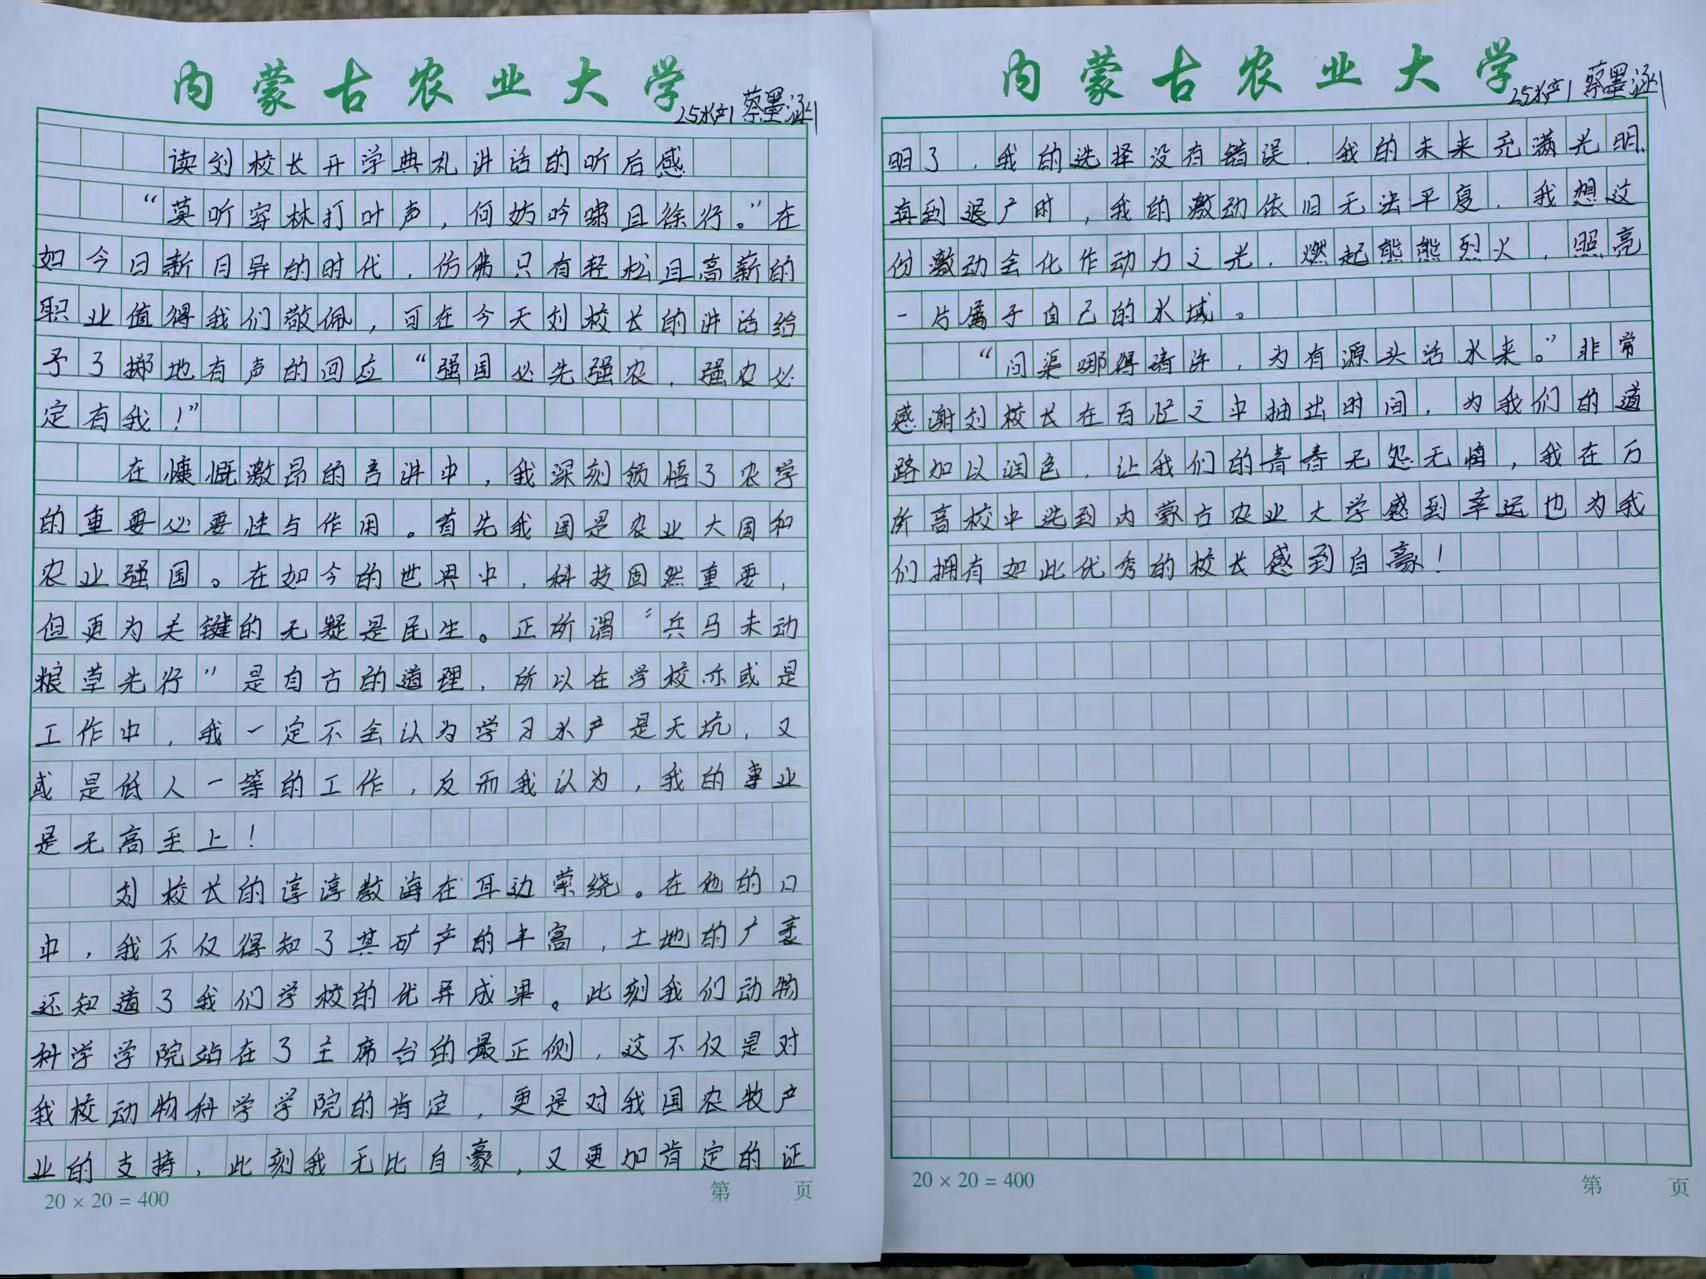 内蒙古农业大学
25水产1 蔡墨涵
读刘校长开学典礼讲话的听后感
“莫听穿林打叶声，何妨吟啸且徐行。”在
如今日新月异的时代，仿佛只有轻松且高薪的
职业值得我们敬佩，可在今天刘校长的讲话给
予了掷地有声的回应“强国必先强农，强农必
定有我！”
在慷慨激昂的言讲中，我深刻领悟了农学
的重要必要性与作用。首先我国是农业大国和
农业强国。在如今的世界中，科技固然重要，
但更为关键的无疑是民生。正所谓“兵马未动
粮草先行”是自古的道理，所以在学校亦或是
工作中，我一定不会认为学习水产是天坑，又
或是低人一等的工作，反而我认为，我的事业
是无高至上！
刘校长的谆谆教海在耳边萦绕。在他的口
中，我不仅得知了其矿产的丰富，土地的广袤
还知道了我们学校的优异成果。此刻我们动物
科学学院站在了主席台的最正侧，这不仅是对
我校动物科学学院的肯定，更是对我国农牧产
业的支持，此刻我无比自豪，又更加肯定的证
20 × 20 = 400
第 页
内蒙古农业大学
25水产1 蔡墨涵
明了，我的选择没有错误，我的未来充满光明.
再到退广时，我的激动依旧无法平复，我想这
份激动会化作动力之光，燃起熊熊烈火，照亮
一片属于自己的水域。
“问渠哪得清许，为有源头活水来。”非常
感谢刘校长在百忙之中抽出时间，为我们的道
路加以润色，让我们的青春无怨无悔，我在万
所高校中选到内蒙古农业大学感到幸运也为我
们拥有如此优秀的校长感到自豪！
20 × 20 = 400
第 页